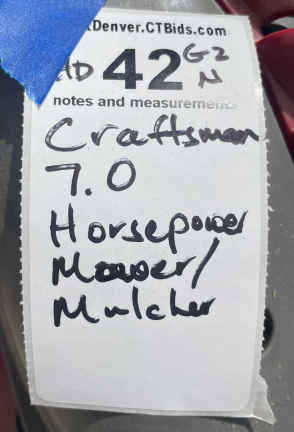 Denver.CTBids.com
42 G2
N
notes and measurements
Craftsman
7.0
Horsepower
Mower/
Mulcher